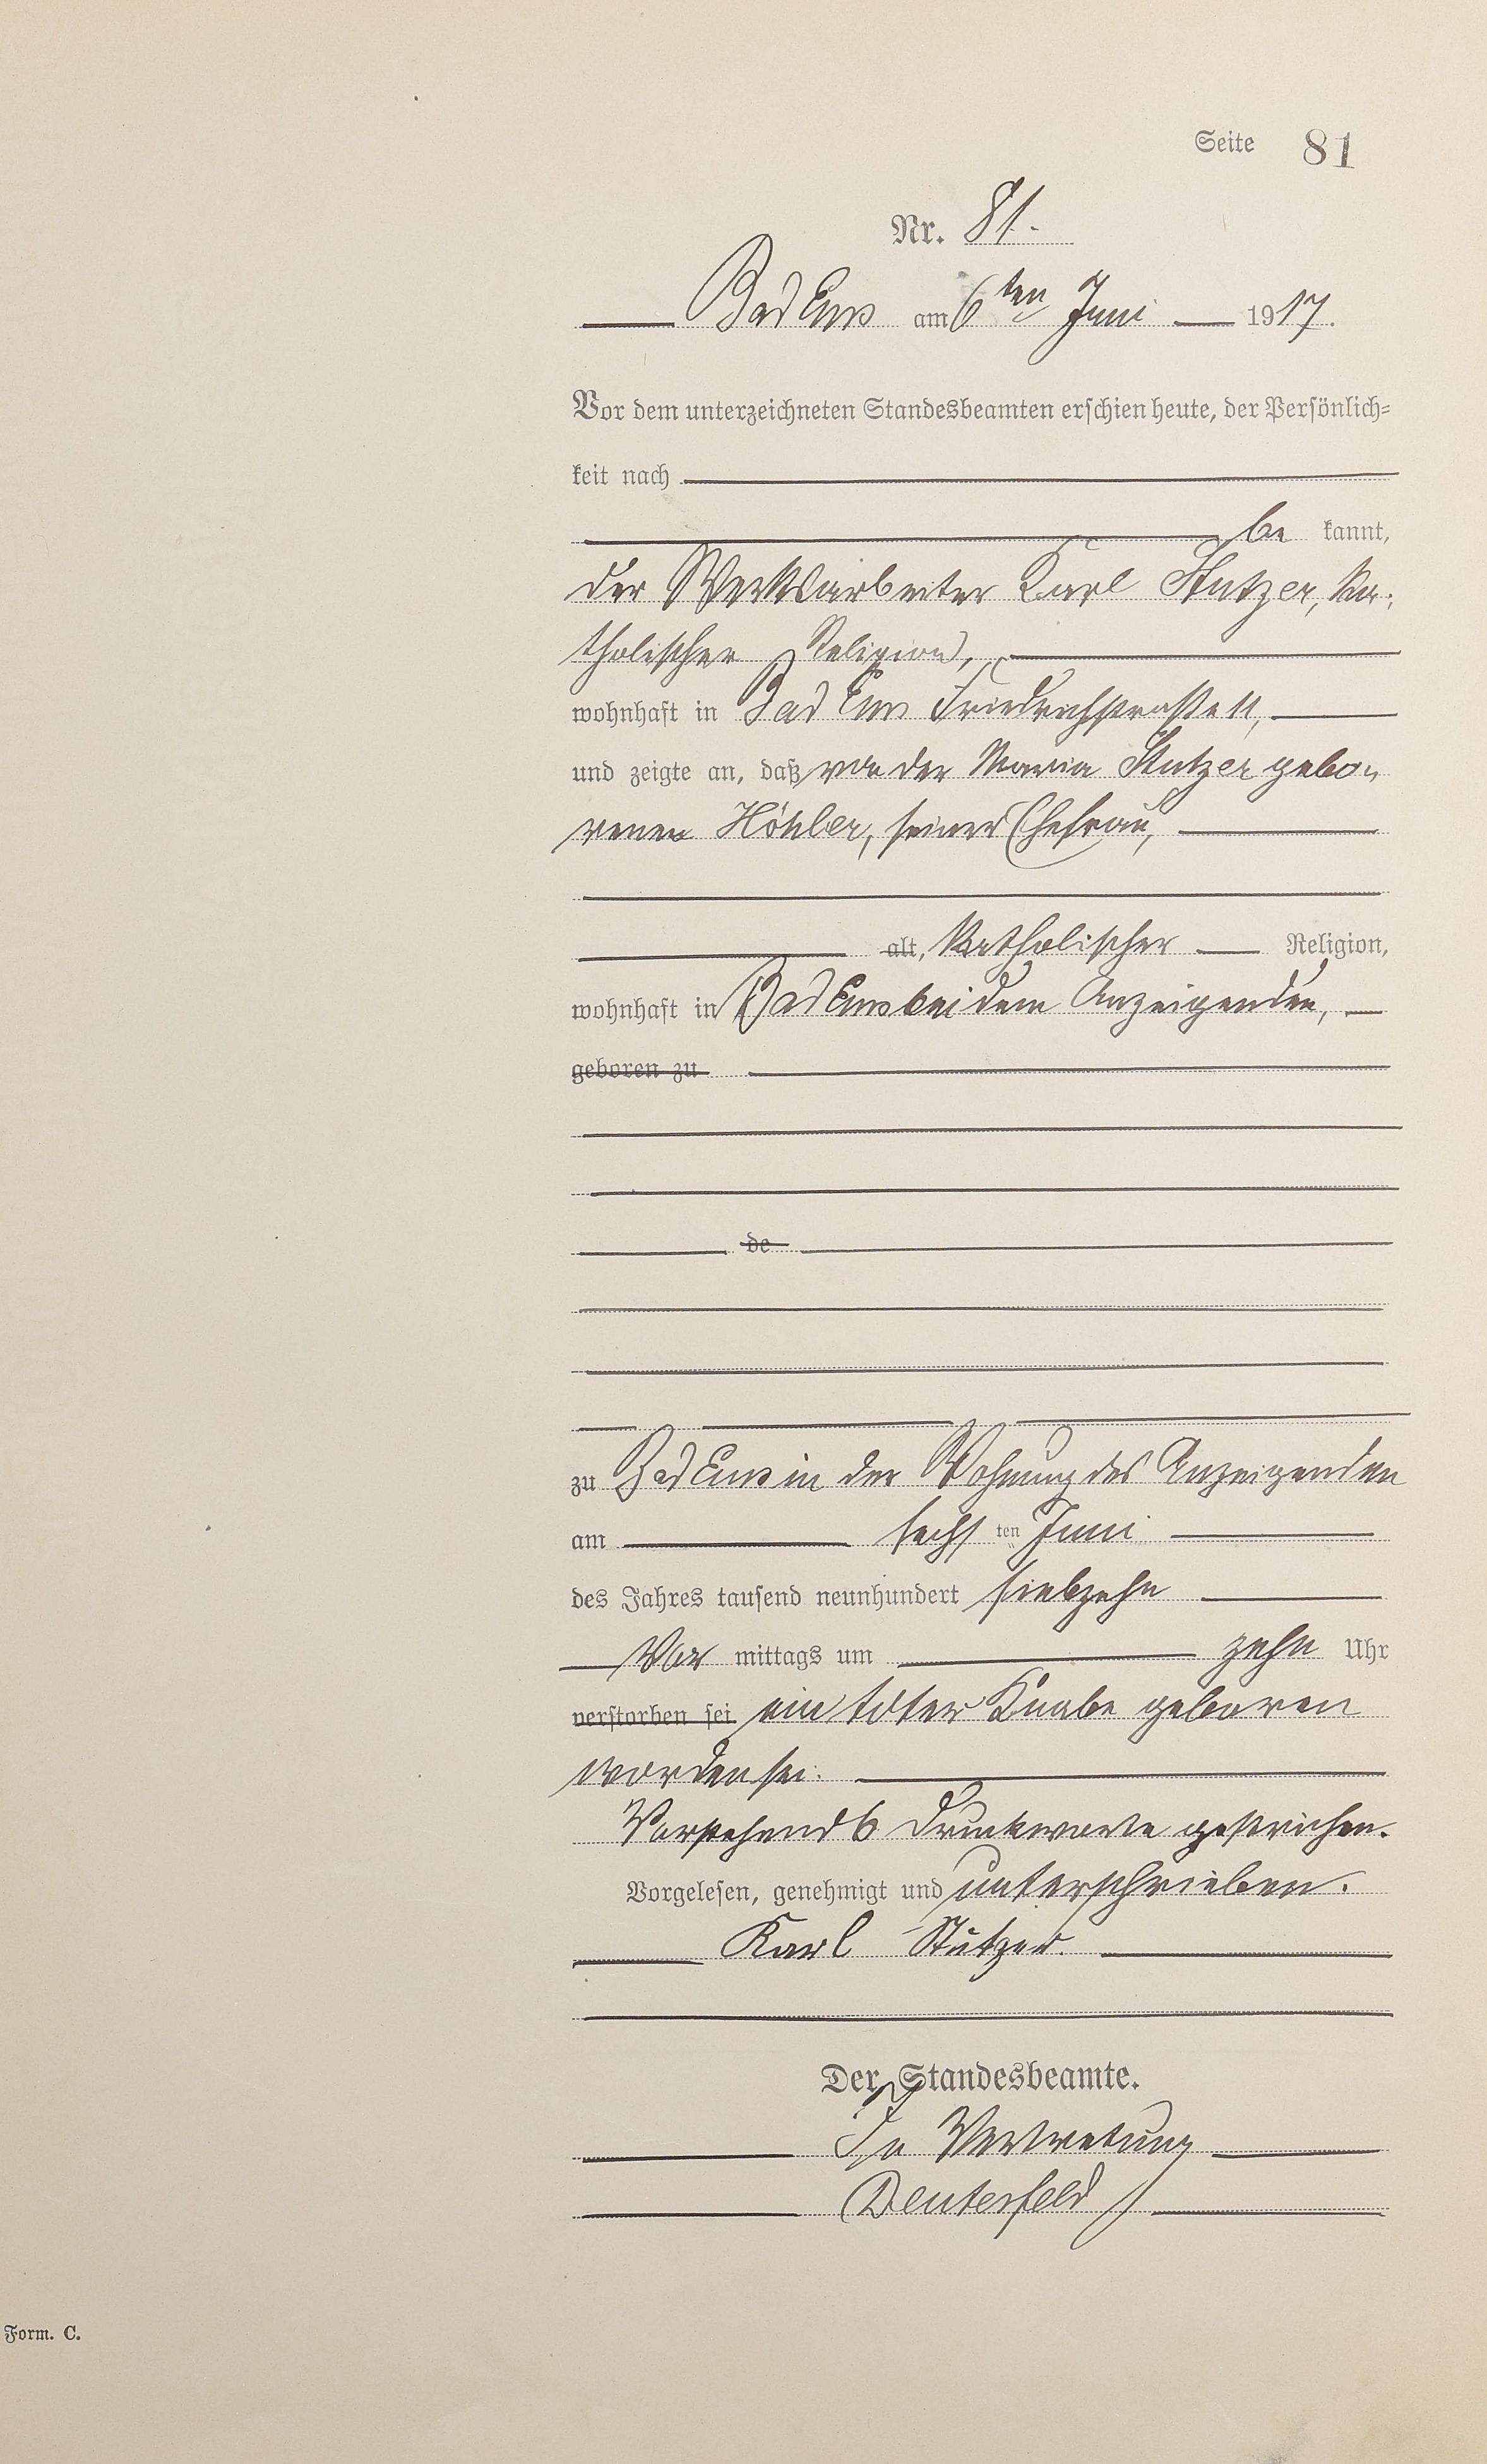 Seite 81
Nr. 81.
Bad Ems am 6ten Juni 1917.
Vor dem unterzeichneten Standesbeamten erschien heute, der Persönlich-
keit nach
be kannt,
der Werksarbeiter Karl Stutzer, ka-
tholischer Religion,
wohnhaft in Bad Ems Friedrichstraße 11,
und zeigte an, daß von der Maria Stutzer gebo-
renen Höhler, seiner Ehefrau,
alt, katholischer Religion,
wohnhaft in Bad Ems bei dem Anzeigenden,
geboren zu
de
zu Bad Ems in der Wohnung des Anzeigenden
am sechs ten Juni
des Jahres tausend neunhundert siebzehn
Vor mittags um zehn Uhr
verstorben sei ein toter Knabe geboren
worden sei.
Vorstehend 6 Druckworte gestrichen.
Vorgelesen, genehmigt und unterschrieben.
Karl Stutzer.
Der Standesbeamte.
In Vertretung
Form. C.